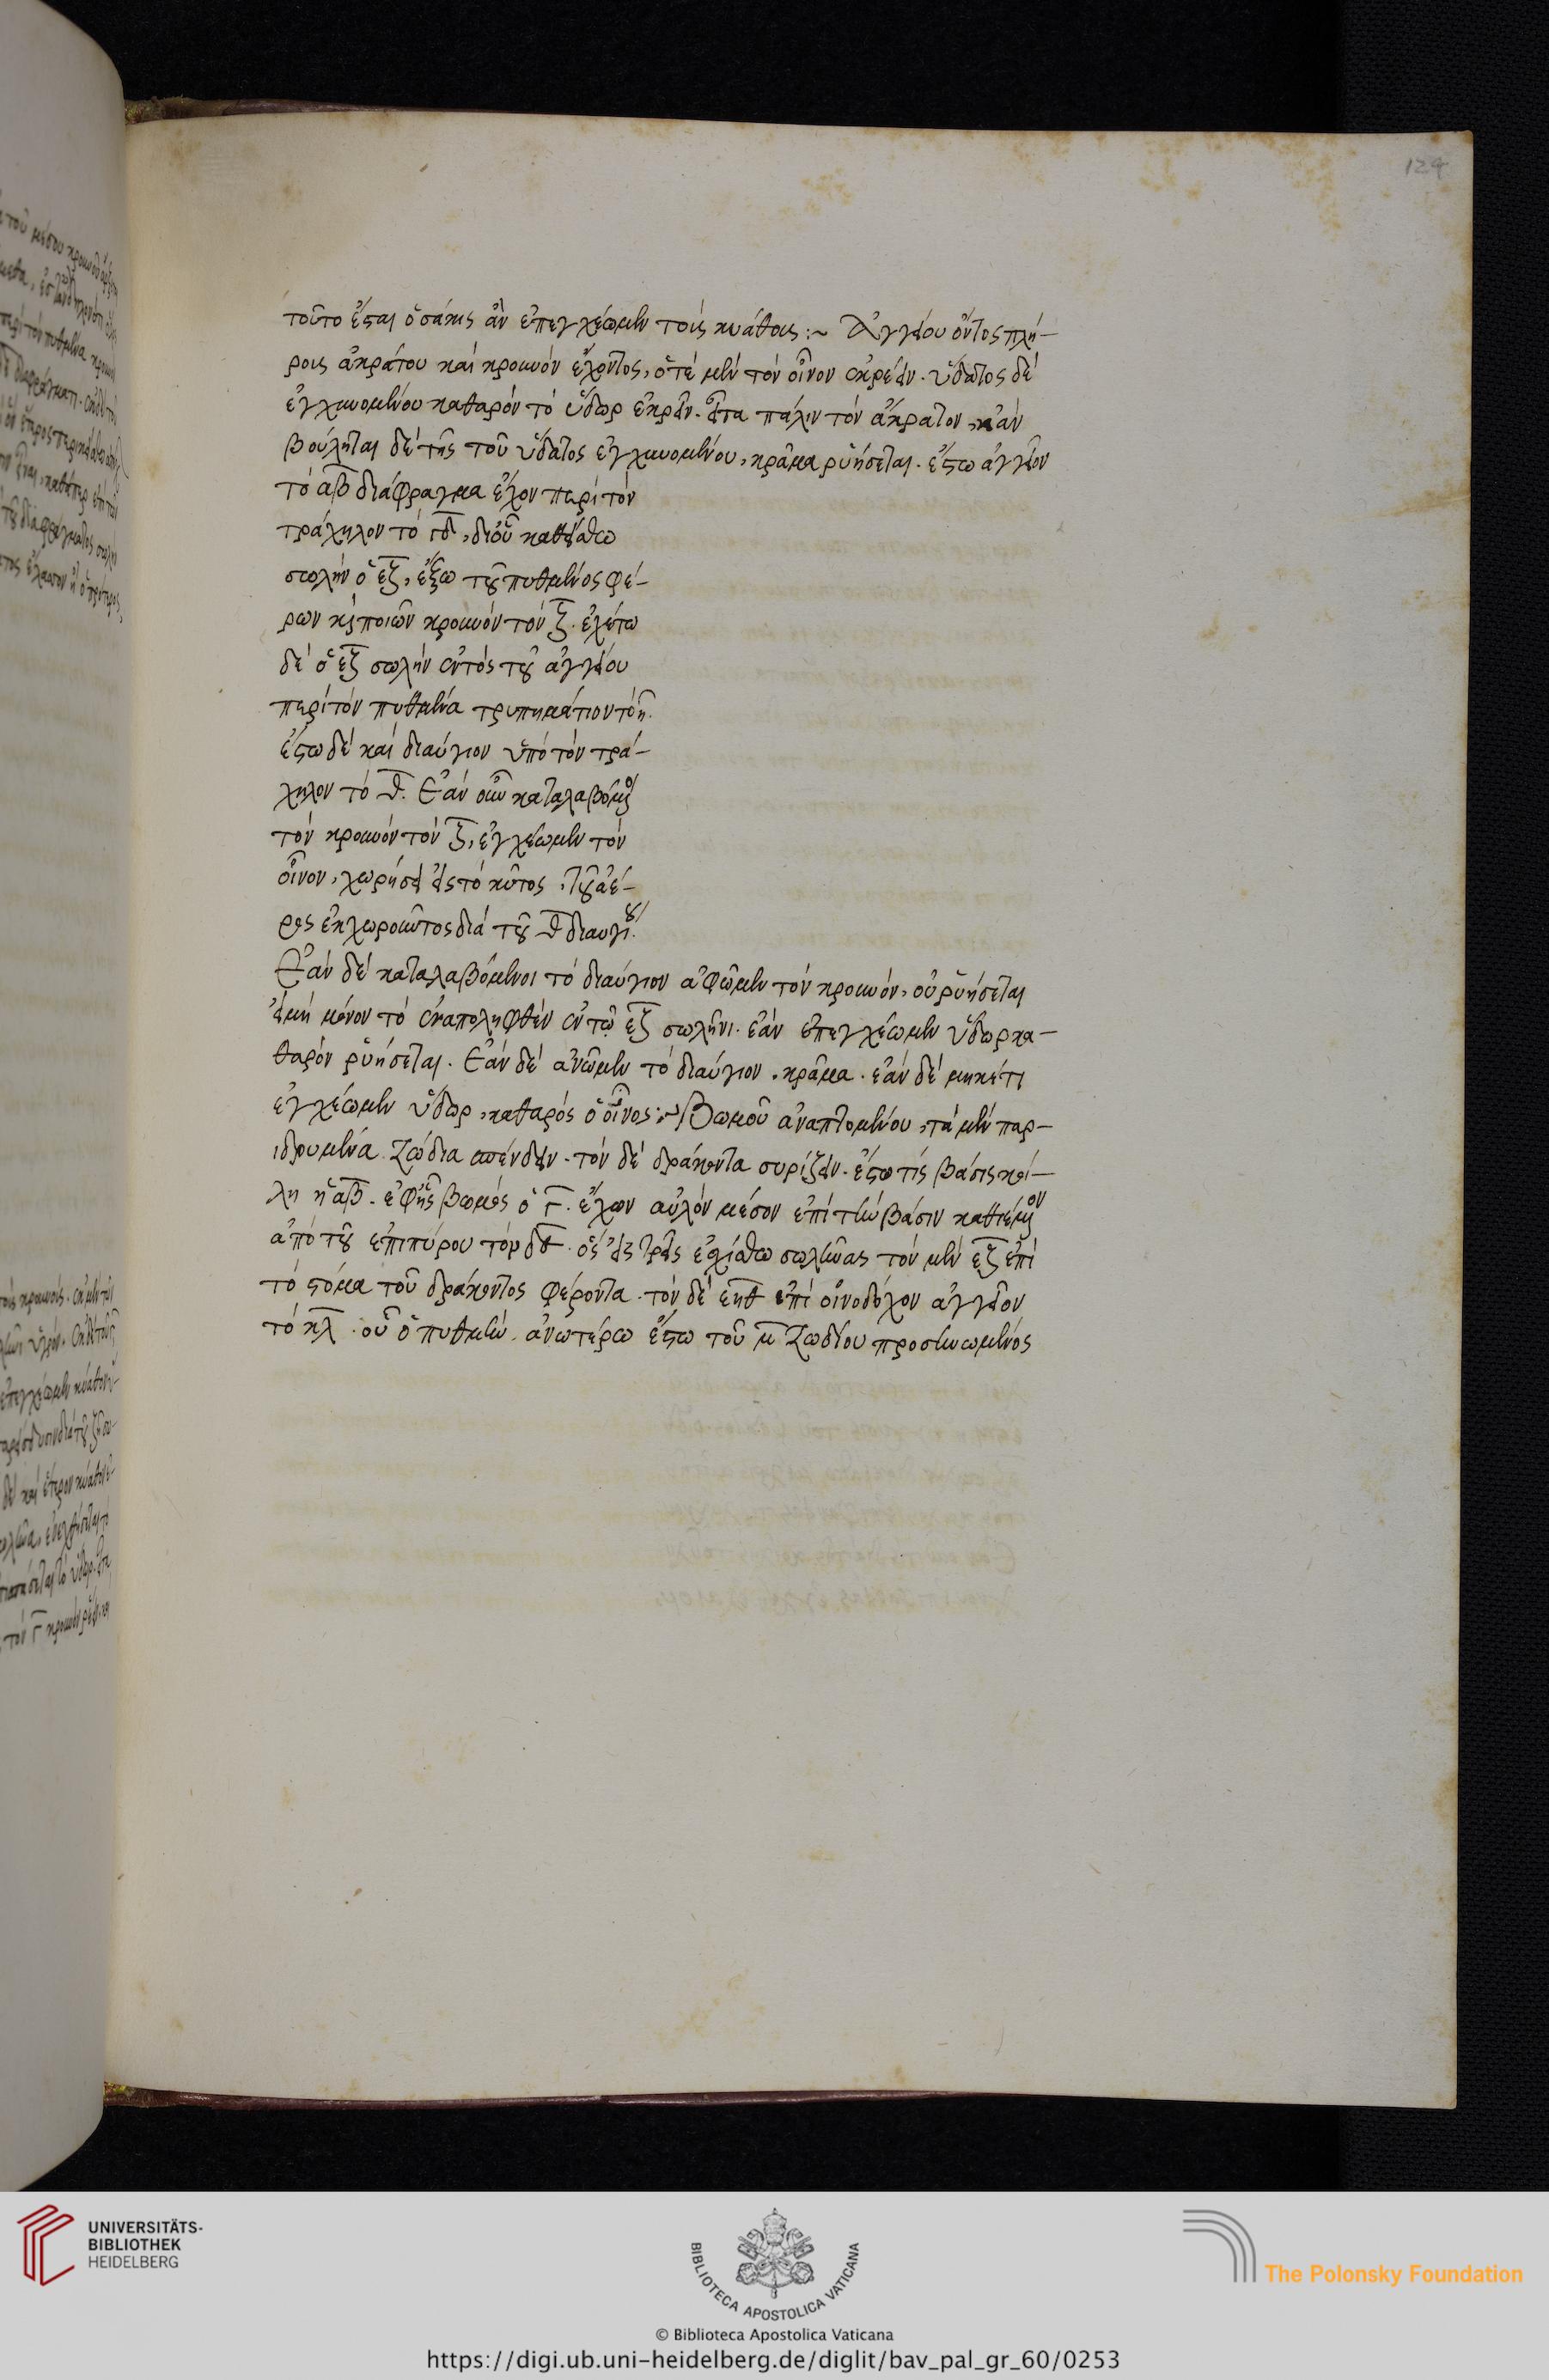 124
τοῦτο ἔσται ὁσάκις ἂν ἐπεγχέωμεν τοῖς κυάθοις :~ Ἀγγείου ὄντος πλή-
ροις ἀκράτου καὶ κρουνὸν ἔχοντος, ὁτὲ μὲν τὸν οἶνον ἐκρεῖν. ὕδατος δὲ
ἐγχυνομένου καθαρὸν τὸ ὕδωρ ἐκρεῖν. εἶτα πάλιν τὸν ἄκρατον, κἀν
βούληται δέ τις τοῦ ὕδατος ἐγχυνομένου, κρᾶμα ῥυήσεται. ἔστω ἀγγεῖον
τὸ αβ διάφραγμα ἔχον περὶ τὸν
τράχηλον τὸ γδ, δι οὗ καθείσθω
σωλὴν ὁ εζ, ἔξω τοῦ πυθμένος φέ-
ρων καὶ ποιῶν κρουνὸν τὸν ζ. ἐχέτω
δὲ ὁ εζ σωλὴν ἐντὸς τοῦ ἀγγείου
περὶ τὸν πυθμένα τρυπημάτιον τὸ η.
ἔστω δὲ καὶ διαύγιον ὑπὸ τὸν τρά-
χηλον τὸ θ. Ἐὰν οὖν καταλαβόμενοι
τὸν κρουνὸν τὸν ζ, ἐγχέωμεν τὸν
οἶνον, χωρήσει εἰς τὸ κῦτος, τοῦ ἀέ-
ρος ἐκχωροῦντος διὰ τοῦ θ διαυγίου.
Ἐὰν δὲ καταλαβόμενοι τὸ διαύγιον ἀφῶμεν τὸν κρουνὸν, οὐ ῥυήσεται
εἰ μὴ μόνον τὸ ἐναποληφθὲν ἐν τῷ εζ σωλῆνι. ἐὰν ἐπεγχέωμεν ὕδωρ κα-
θαρὸν ῥυήσεται. Ἐὰν δὲ ἀνῶμεν τὸ διαύγιον, κρᾶμα. ἐὰν δὲ μηκέτι
ἐγχέωμεν ὕδωρ, καθαρὸς ὁ οἶνος :~ Βωμοῦ ἀναπτομένου, τὰ μὲν παρ-
ιδρυμένα ζώδια σπένδειν. τὸν δὲ δράκοντα συρίζειν. ἔστω τίς βάσις κοί-
λη ἡ αβ. ἐφ' ἧς βωμὸς ὁ γ. ἔχων αὐλὸν μέσον ἐπὶ τὴν βάσιν καθιέμενον
ἀπὸ τοῦ ἐπιπύρου τὸν δε. ὃς εἰς τρεῖς ἐσχίσθω σωλῆνας τὸν μὲν εζ ἐπὶ
τὸ στόμα τοῦ δράκοντος φέροντα. τὸν δὲ εηθ ἐπὶ οἰνοδόχον ἀγγεῖον
τὸ κλ. οὗ ὁ πυθμὴν ἀνωτέρω ἔστω τοῦ μ ζωδίου προσηνωμένος
UNIVERSITÄTS-
BIBLIOTHEK
HEIDELBERG
BIBLIOTECA APOSTOLICA VATICANA
The Polonsky Foundation
© Biblioteca Apostolica Vaticana
https://digi.ub.uni-heidelberg.de/diglit/bav_pal_gr_60/0253